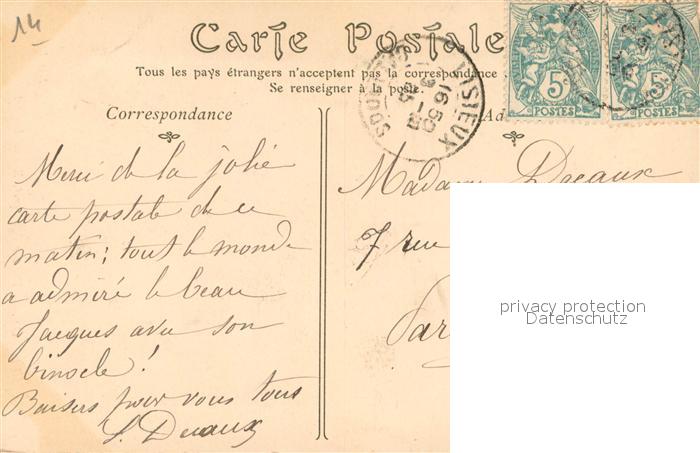 14
Carte Postale
Tous les pays étrangers n'acceptent pas la correspondance
Se renseigner à la poste.
LISIEUX
16 50
CALVADOS
5 5
POSTES POSTES
Correspondance
Ad
Merci de la jolie
carte postale de ce
matin; tout le monde
a admiré le beau
Jacques avec son
binocle!
Baisers pour vous tous
S. Decaux
Madame Decaux
7 rue
Par
privacy protection
Datenschutz